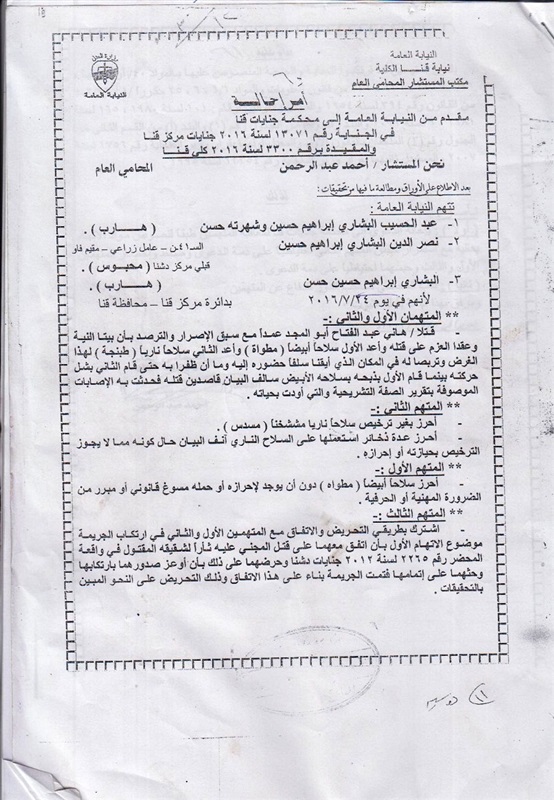 النيابة العامة
نيابة قنا الكلية
مكتب المستشار المحامى العام
النيابة العامة
أمر إحالة
مقدم من النيابة العامة إلى محكمة جنايات قنا
في الجناية رقم ١٣٠٧١ لسنة ٢٠١٦ جنايات مركز قنا
والمقيدة برقم ٣٣٠٠ لسنة ٢٠١٦ كلى قنا
نحن المستشار / أحمد عبد الرحمن المحامي العام
بعد الاطلاع على الأوراق ومطالعة ما فيها من تحقيقات :
تتهم النيابة العامة :
١- عبد الحسيب البشاري إبراهيم حسين وشهرته حسن ( هـــارب ) .
٢- نصر الدين البشاري إبراهيم حسين السـ٤١ـن - عامل زراعي - مقيم فاو
قبلي مركز دشنا ( محبوس ) .
٣- البشاري إبراهيم حسين حسن ( هـــارب ) .
لأنهم في يوم ٢٠١٦/٧/٢٤ بدائرة مركز قنا – محافظة قنا
** المتهمان الأول والثاني :-
قتلا / هاني عبد الفتاح أبو المجد عمداً مع سبق الإصرار والترصد بأن بيتا النية
وعقدا العزم على قتله وأعد الأول سلاحاً أبيضاً ( مطواة ) وأعد الثاني سلاحاً نارياً ( طبنجة ) لهذا
الغرض وتربصا له في المكان الذي أيقنا سلفاً حضوره إليه وما أن ظفرا به حتى قام الثاني بشل
حركته بينما قام الأول بذبحه بسلاحه الأبيض سالف البيان قاصدين قتله فحدثت به الإصابات
الموصوفة بتقرير الصفة التشريحية والتي أودت بحياته .
** المتهم الثاني :-
- أحرز بغير ترخيص سلاحاً نارياً مششخناً ( مسدس ) .
- أحرز عدة ذخائر استعملها على السلاح الناري آنف البيان حال كونه مما لا يجوز
الترخيص بحيازته أو إحرازه .
** المتهم الأول :-
- أحرز سلاحاً أبيضاً ( مطواه ) دون أن يوجد لإحرازه أو حمله مسوغ قانوني أو مبرر من
الضرورة المهنية أو الحرفية .
** المتهم الثالث :-
- اشترك بطريقي التحريض والاتفاق مع المتهمين الأول والثاني في ارتكاب الجريمة
موضوع الاتهام الأول بأن اتفق معهما على قتل المجني عليه ثأراً لشقيقه المقتول في واقعة
المحضر رقم ٢٢٦٥ لسنة ٢٠١٢ جنايات دشنا وحرضهما على ذلك بأن أوعز صدورهما بارتكابها
وحثهما على إتمامها فتمت الجريمة بناء على هذا الاتفاق وذلك التحريض على النحو المبين
بالتحقيقات .